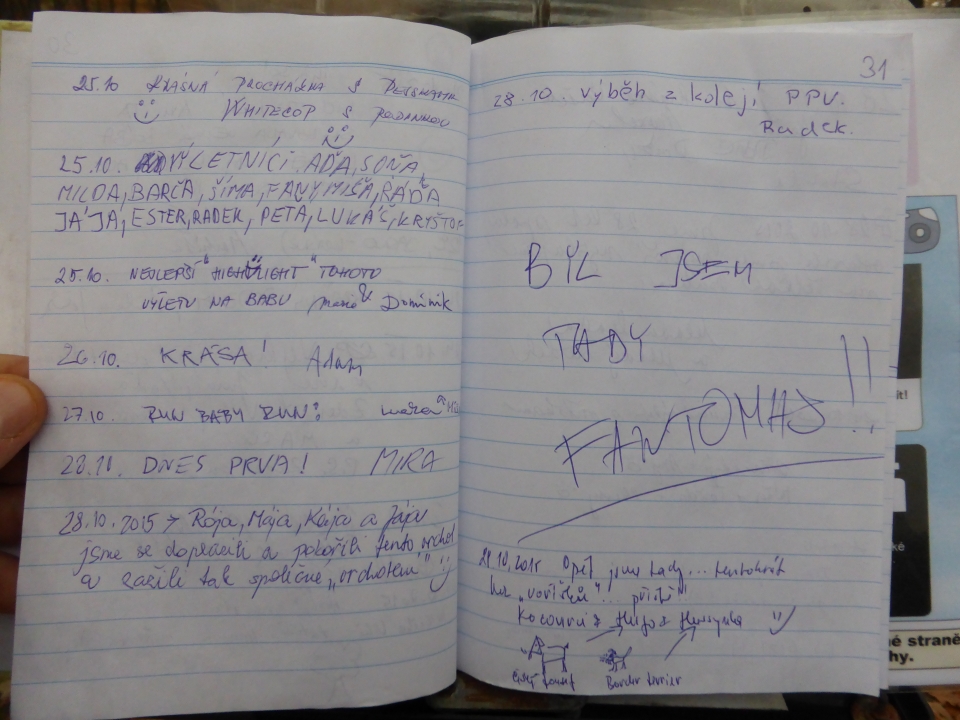 25.10 KRÁSNÁ PROCHÁZKA S
WHITECOP S RODINKOU
25.10. VÝLETNÍCI AĎA, SOŇA,
MILDA, BARČA, ŠÍMA, FANY, MÍŠA, RÁĎA
JÁ'JA, ESTER, RADEK, PETA, LUKÁŠ, KRYŠTOF
25.10. NEJLEPŠÍ "HIGHLIGHT" TOHOTO
VÝLETU NA BABU & Dominik
26.10. KRÁSA! Adam
27.10 RUN BABY RUN!
28.11. DNES PRVA! MIRA
28.10.2015 > Rója, Mája, Kája a Jája
jsme se doplazili a pokořili tento vrchol
a zažili tak společné "vrcholení"
31
28.10... výběh z kolejí PPV.
Radek.
BYL JSEM
TADY
FANTOMAS!!
21.10.2015 Opět jsme tady... tentokrát
na
Kocourci & Hugo &
Český fousek Border terier
it!
ké
né straně
hy.